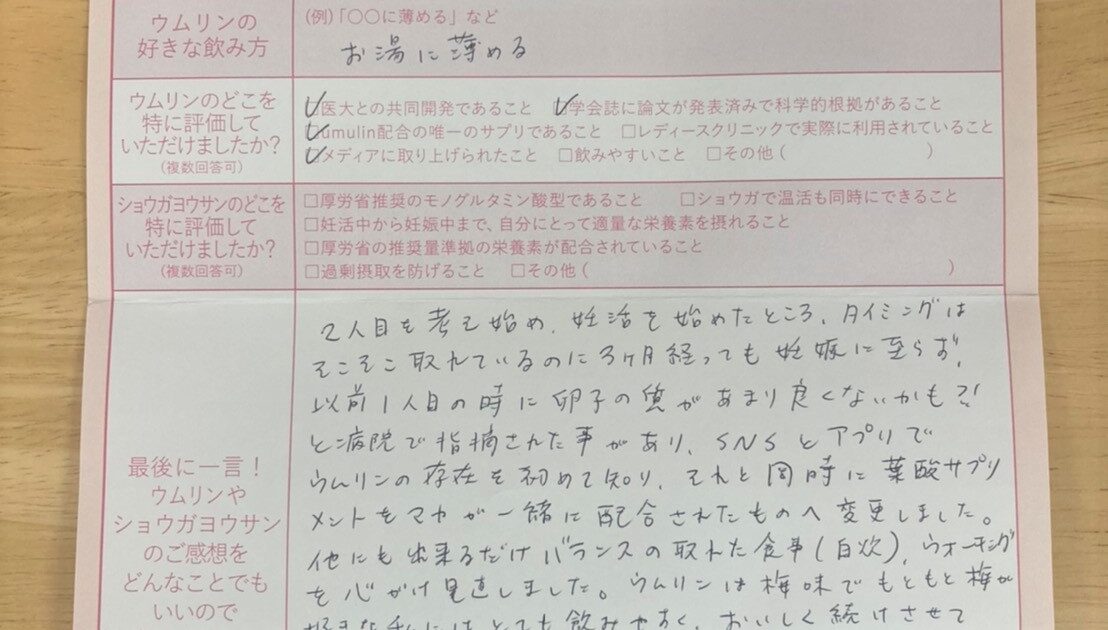 ウムリンの
好きな飲み方
(例)「○○に薄める」など
お湯に薄める
ウムリンのどこを
特に評価して
いただけましたか?
(複数回答可)
☑医大との共同開発であること ☑学会誌に論文が発表済みで科学的根拠があること
☑umulin配合の唯一のサプリであること □レディースクリニックで実際に利用されていること
☑メディアに取り上げられたこと □飲みやすいこと □その他( )
ショウガヨウサンのどこを
特に評価して
いただけましたか?
(複数回答可)
□厚労省推奨のモノグルタミン酸型であること □ショウガで温活も同時にできること
□妊活中から妊娠中まで、自分にとって適量な栄養素を摂れること
□厚労省の推奨量準拠の栄養素が配合されていること
□過剰摂取を防げること □その他( )
最後に一言!
ウムリンや
ショウガヨウサン
のご感想を
どんなことでも
いいので
2人目を考え始め、妊活を始めたところ、タイミングは
そこそこ取れているのに3ヶ月経っても妊娠に至らず、
以前1人目の時に卵子の質があまり良くないかも?!
と病院で指摘された事があり、SNSとアプリで
ウムリンの存在を初めて知り、それと同時に葉酸サプリ
メントをマカが一緒に配合されたものへ変更しました。
他にも出来るだけバランスの取れた食事(自炊)、ウォーキング
を心がけ見直しました。ウムリンは梅味でもともと梅が
好きな私にはとても飲みやすく、おいしく続けさせて